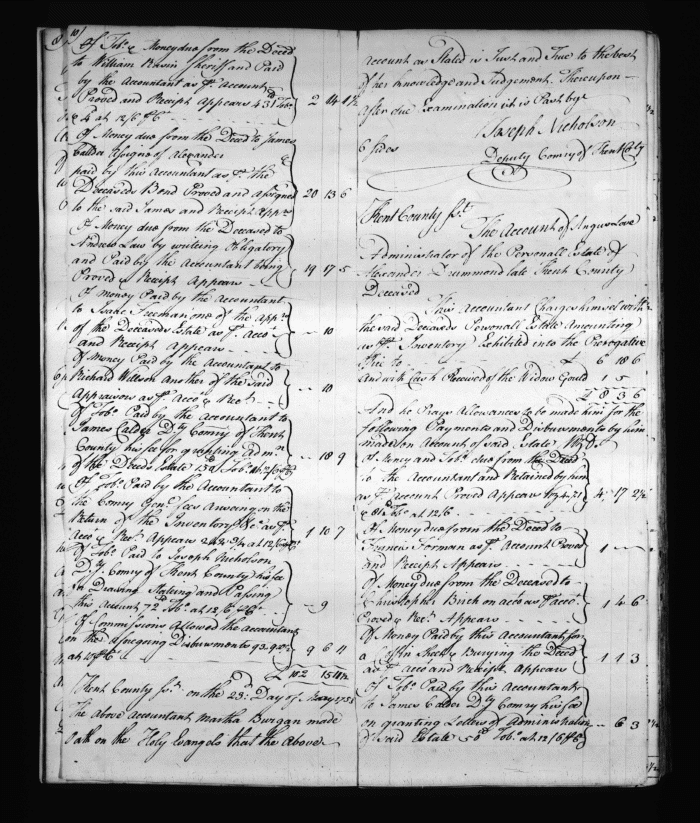 10
Of Tob.o & Money due from the Deced
to William Bivin Sheriff and Paid
by the Accountant as p. Account
Proved and Receipt Appears 431 lbs Tob.o
& 4 at 12/6 p. C 2 14 1 1/2
Of Money due from the Deced to James
Calder Assignee of Alexander
paid by this Accountant as p. the
Deceaseds Bond Proved and Assigned
to the said James and Receipt App.rs 20 13 6
Of Money due from the Deceased to
Andrew Law by writing Obligatory
and Paid by the Accountant being
Proved & Receipt Appears 14 17 5
Of Money Paid by the Accountant
to Isaac Freeman one of the App.rs
of the Deceaseds Estate as p. Acco.t
and Receipt Appears - - 10
Of Money Paid by the Accountant to
Richard Willson another of the said
Appraisors as p. Acco.t & Rec.t - - 10
Of Tob.o Paid by the Accountant to
James Calder D.ty Comry of Kent
County his fee for granting Adm.n
of the Deceds Estate 150 Tob.o at 12/6 p. C - 18 9
Of Tob.o Paid by the Accountant to
the Comry Gen.l fees Arising on the
Return of the Inventory &c as p.
Acco.t & Rec.t Appears at 12/6 1 10 7
Of Tob.o Paid to Joseph Nicholson
D.ty Comry of Kent County his fee
on Drawing Stating and Passing
this Account 72 Tob.o at 12/6 p. C - 9
Of Commissions Allowed the Accountant
on the Aforegoing Disbursments 93.9.0 1/2
at 10 p. C 9 6 4
£ 102 15 4 1/2
Kent County Ss.t on the 23.d Day of May 1751
The above Accountant Martha Burgan made
Oath on the Holy Evangels that the Above
Account as Stated is Just and True to the best
of her knowledge and Judgement. Thereupon
after due Examination it is Past by
Joseph Nicholson
6 sides
Deputy Comry of Kent C.ty
Kent County Ss.t
The Account of Angus Love
Administrator of the Personall Estate of
Alexander Drummond late Kent County
Deceased
This Accountant Charges himself with
the said Deceaseds Personall Estate Amounting
as p. Inventory Exhibited into the Prerogative
Office to £ 6 18 6
And with Cash Received of the Widow Gould 1 5
£ 8 3 6
And he Prays Allowances to be made him for the
following Payments and Disbursments by him
made on Account of said Estate Viz.t
Of Money and Tob.o due from the Deced
to the Accountant and Retained by him
as p. Account Proved Appears
& 81 Tob.o at 12/6 4 17 2 1/2
Of Money due from the Deced to
Francis Forman as p. Account Proved
and Receipt Appears 1 - -
Of Money due from the Deceased to
Christopher Birch on acco.t as p. acco.t
Proved & Rec.t Appears 1 4 6
Of Money Paid by this Accountant for
a Coffin Sheet & Burying the Deced
as p. Acco.t and Receipt Appears 1 1 3
Of Tob.o Paid by this Accountant
to James Calder D.ty Comry his fee
on granting Letters of Administration
of said Estate 50 Tob.o at 12/6 p. C - 6 3